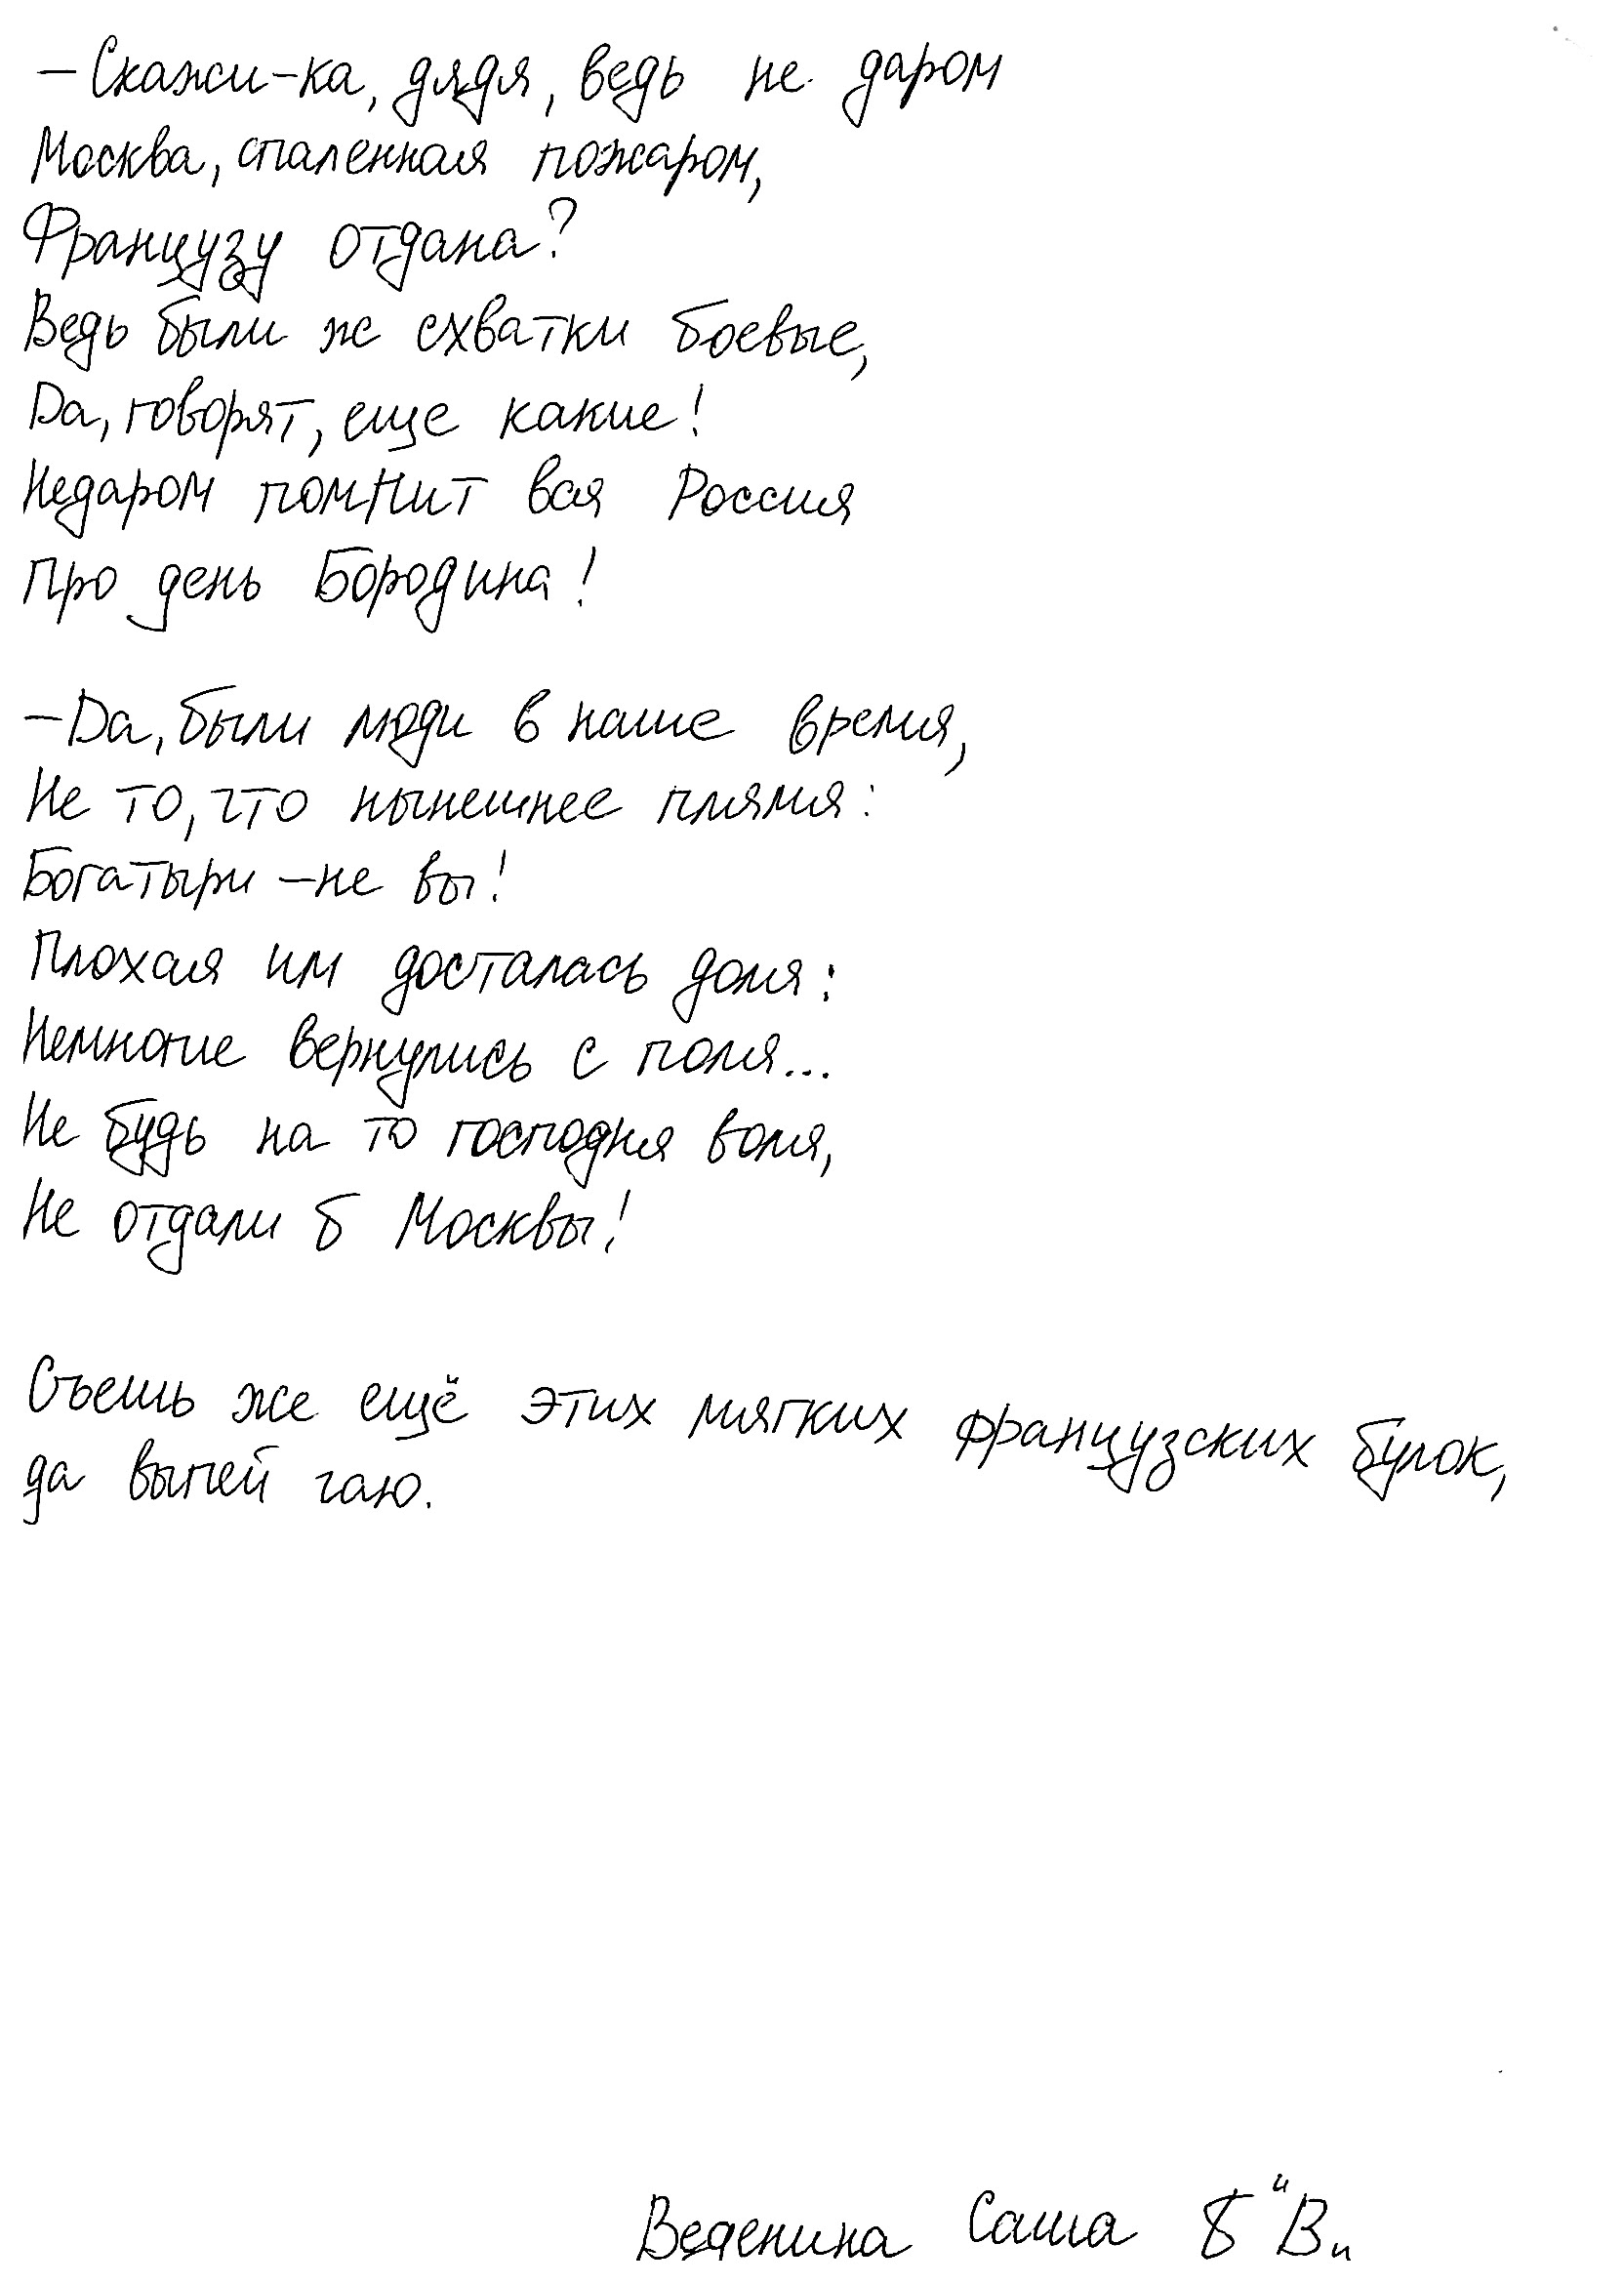 – Скажи-ка, дядя, ведь не даром
Москва, спаленная пожаром,
Французу отдана?
Ведь были ж схватки боевые,
Да, говорят, еще какие!
Недаром помнит вся Россия
Про день Бородина!
– Да, были люди в наше время,
Не то, что нынешнее племя:
Богатыри – не вы!
Плохая им досталась доля:
Немногие вернулись с поля...
Не будь на то господня воля,
Не отдали б Москвы!
Съешь же ещё этих мягких французских булок,
да выпей чаю.
Веденина Саша 8 "В"